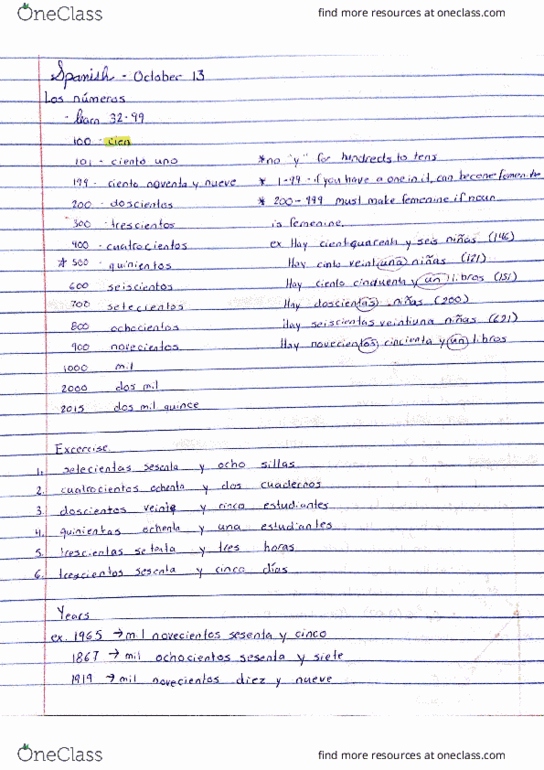 OneClass find more resources at oneclass.com
Spanish - October 13
Los números
- learn 32-99
100 - cien
101 - ciento uno *no "y" for hundreds to tens
199 - ciento noventa y nueve * 1-99 - if you have a one in it, can become femen
200 - doscientos * 200-999 must make femenine if noun
300 - trescientos is femenine.
400 - cuatrocientos ex Hay cient quarenta y seis niñas (146)
* 500 - quinientos Hay cinto veintiuna niñas (121)
600 seiscientos Hay ciento cinduenta y un libros (151)
700 setecientos Hay doscientas niñas (200)
800 ochocientos Hay seiscientas veintiuna niñas (621)
900 novecientos Hay novecientos cincienta y un libros
1000 mil
2000 dos mil
2015 dos mil quince
Excercise
1. setecientas sesenta y ocho sillas
2. cuatrocientos ochenta y dos cuadernos
3. doscientos veinte y cinco estudiantes
4. quinientas ochenta y una estudiantes
5. trescientas setenta y tres horas
6. trescientos sesenta y cinco días
Years
ex. 1965 → mil novecientos sesenta y cinco
1867 → mil ochocientos sesenta y siete
1919 → mil novecientos diez y nueve
OneClass find more resources at oneclass.com